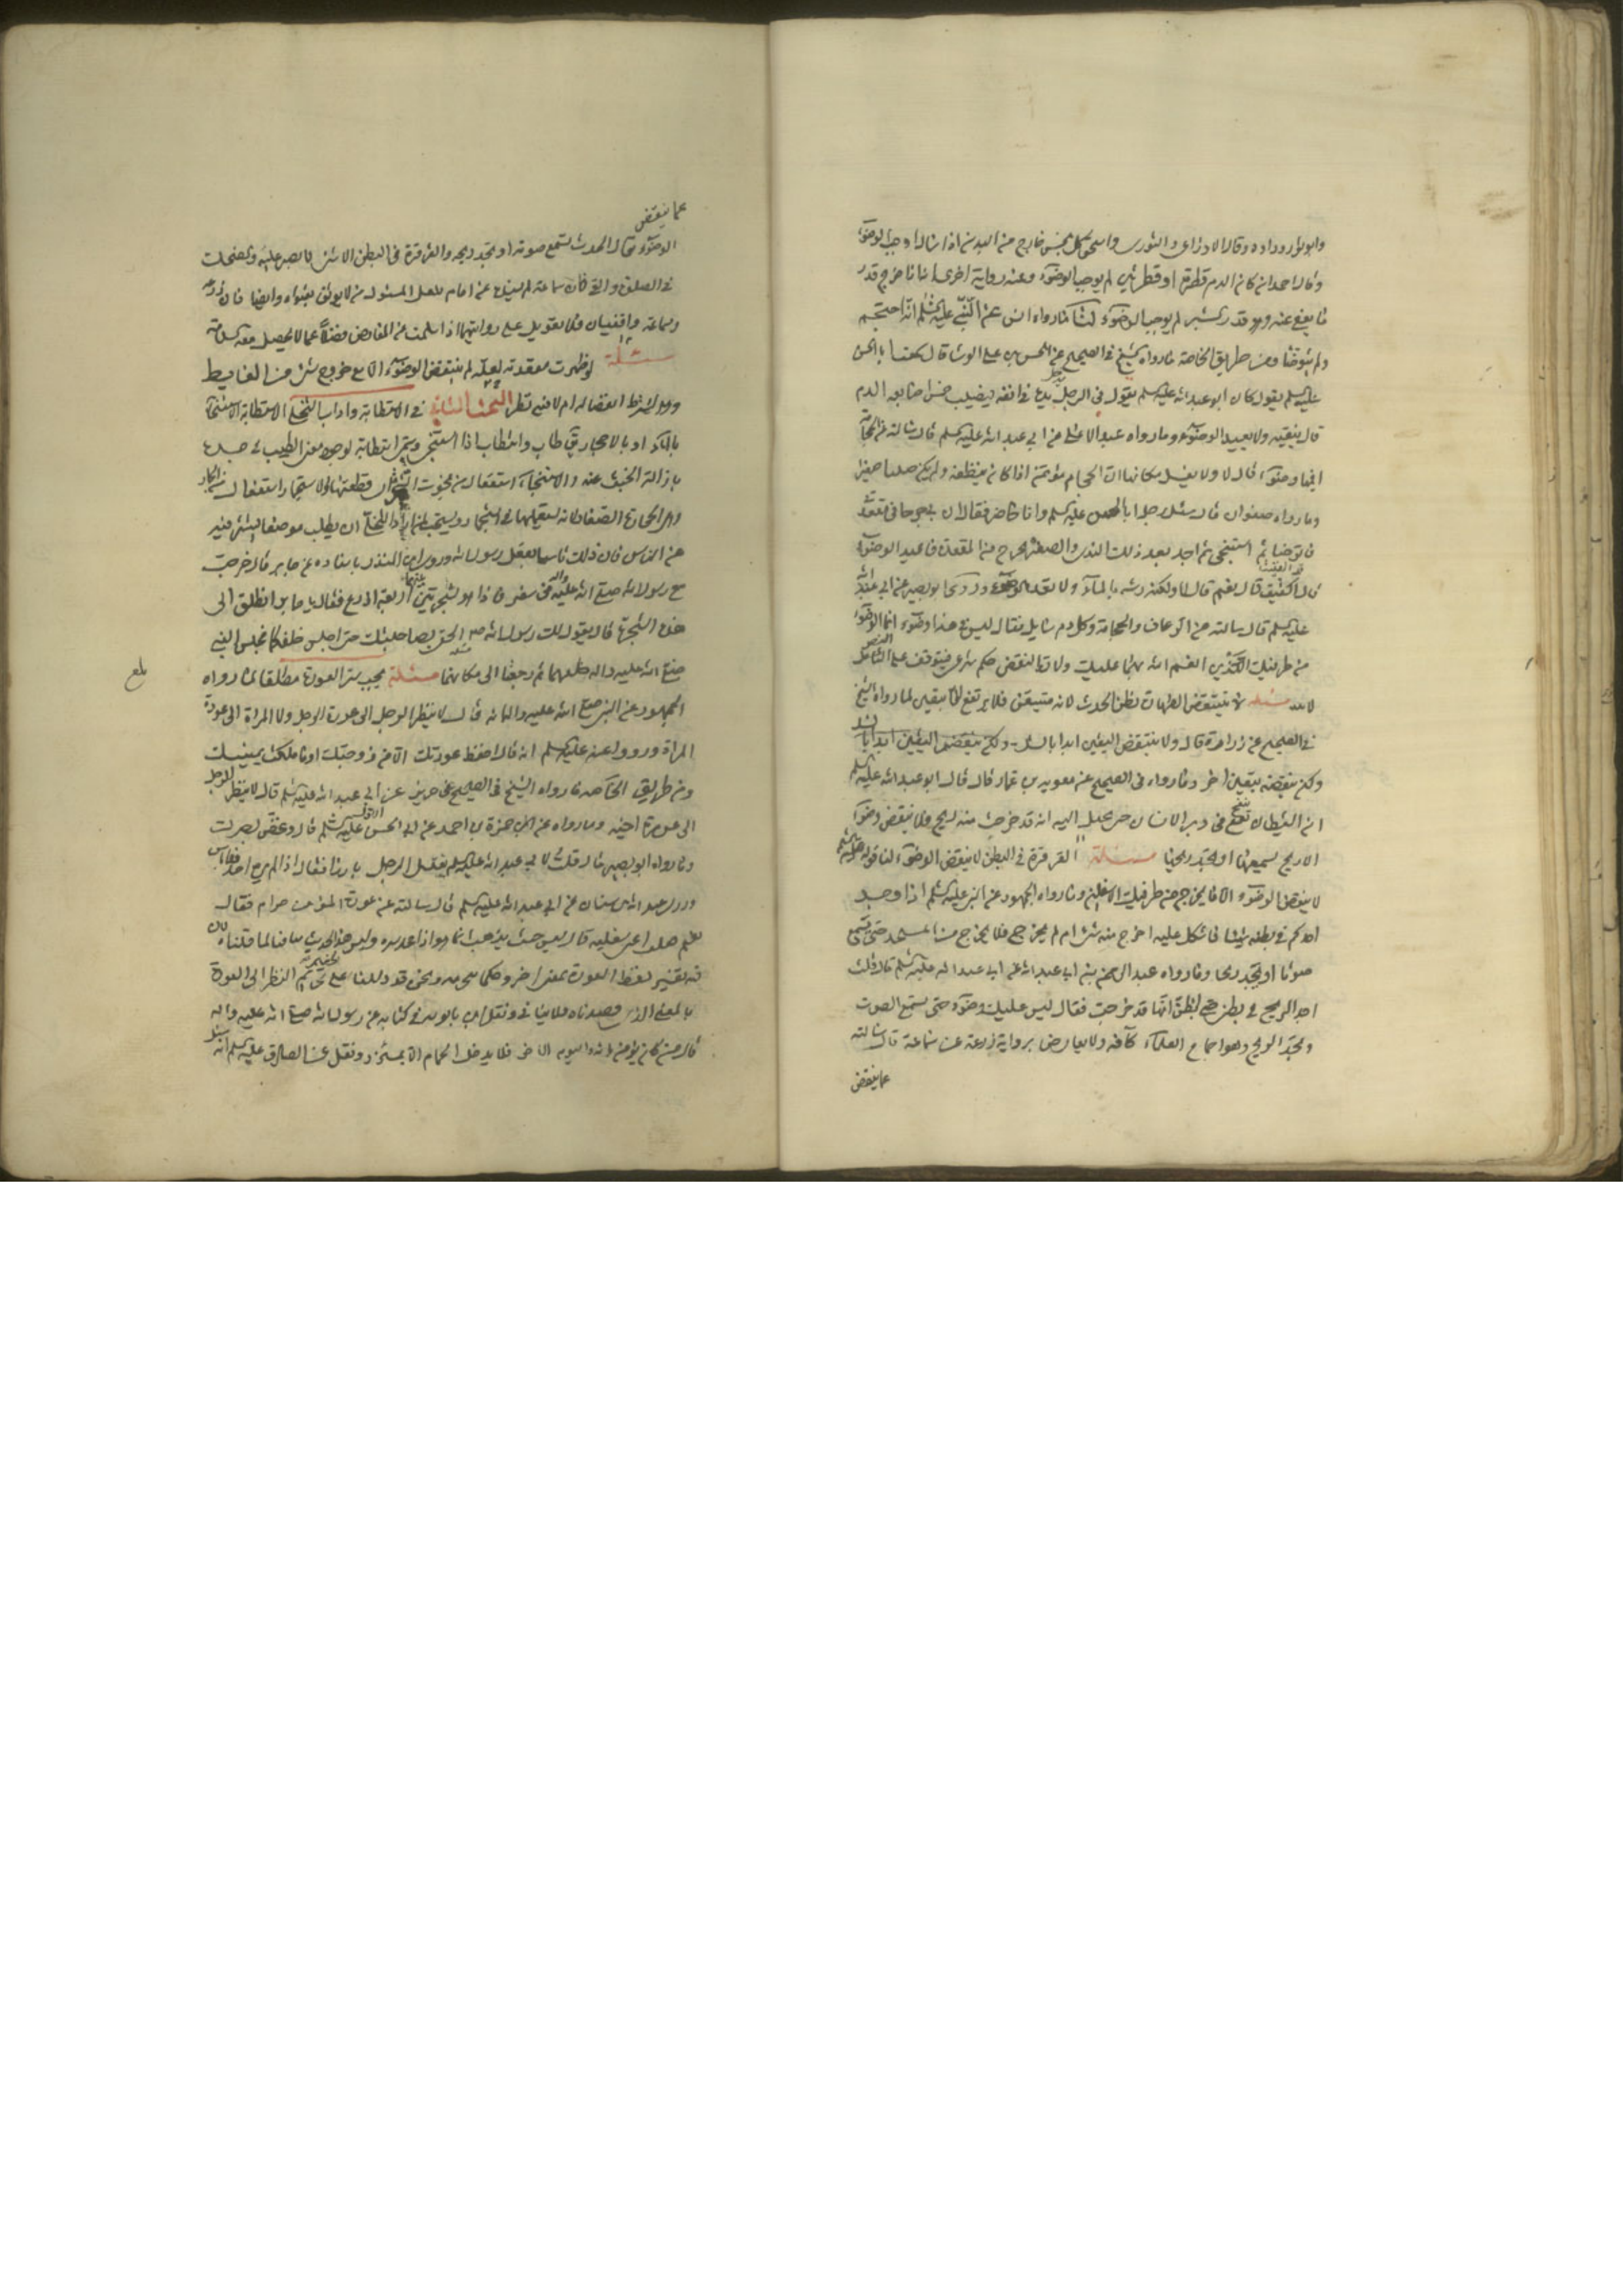 وابو ثور وداود وقال الاوزاعى والثورى واسحق كل نجس خارج من البدن اذا سال اوجب الوضوء
وقال احمد ان كان الدم قطرة او قطرتين لم يوجب الوضوء وعنه رواية اخرى ان خرج قدر
ما يعفى عنه وهو قدر الشبر لم يوجب الوضوء لنا ما رواه انس عن النبى عليه السلم انه احتجم
ولم يتوضأ ومن طريق الخاصة ما رواه الشيخ فى الصحيح عن الحسن بن على الوشا قال سمعت ابا الحسن
عليه السلم يقول كان ابو عبد الله عليه السلم يقول فى الرجل يدخل يده فى انفه فيصيب خمس اصابعه الدم
قال ينقيه ولا يعيد الوضوء وما رواه عبد الاعلى عن ابى عبد الله عليه السلم قال سالته عن الحجامة
افيها وضوء قال لا ولا يغسل مكانها لان الحجام مؤتمن اذا كان ينظفه ولم يكن صبيا صغيرا
وما رواه صفوان قال سئل رجل ابا الحسن عليه السلم وانا حاضر فقال ان بى جرحا فى مقعدتى
فاتوضا ثم استنجى ثم اجد بعد ذلك الندى والصفرة يخرج من المقعدة فاعيد الوضوء
قال أنقيت قال نعم قال لا ولكن رشه بالماء ولا تعد الوضوء وروى ابو بصير عن ابى عبد الله
عليه السلم قال سالته عن الرعاف والحجامة وكل دم سايل فقال ليس فى هذا وضوء انما الوضوء
من طرفيك الذين انعم الله بهما عليك ولان النقض حكم شرعى فيتوقف على الشرع
مسئلة لا ينتقض الطهارة بظن الحدث لانه متيقن فلا يرتفع الا بيقين لما رواه الشيخ
فى الصحيح عن زرارة قال ولا ينتقض اليقين ابدا بالشك
ولكن ينقضه بيقين اخر وما رواه فى الصحيح عن معوية بن عمار قال قال ابو عبد الله عليه السلم
ان الشيطان ينفخ فى دبر الانسان حتى يخيل اليه انه قد خرجت منه ريح فلا ينقض وضوء
الا ريح يسمعها او يجد ريحها مسئلة القرقرة فى البطن لا ينقض الوضوء لنا قوله عليه السلم
لا ينقض الوضوء الا ما يخرج من طرفيك الاسفلين وما رواه الجمهور عن النبى عليه السلم اذا وجد
احدكم فى بطنه شيئا فاشكل عليه اخرج منه شئ ام لم يخرج فلا يخرج من المسجد حتى يسمع
صوتا او يجد ريحا وما رواه عبد الرحمن بن ابى عبد الله عن ابى عبد الله عليه السلم قال قلت
اجد الريح فى بطنى حتى اظن انها قد خرجت فقال ليس عليك وضوء حتى تسمع الصوت
وتجد الريح وهو اجماع العلماء كافة ولا يعارض برواية زرعة عن سماعة قال سالته
عما ينقض
عما ينقض
الوضوء قال الحدث تسمع صوته او تجد ريحه والقرقرة فى البطن الا شئ تصبر عليه والضحك
فى الصلوة والقئ فان سماعة لم يسنده عن امام فلعل المسئول من لا يوثق بفتواه وايضا فان زرعة
وسماعة واقفيان فلا تعويل على روايتهما اذا سلمت عن المعارض فضلا عما لا يحصل معه السلامة
مسئلة لو ظهرت مقعدته لم ينتقض الوضوء الا مع خروج شئ من الغايط
وهل يشترط انفصاله ام لا فيه نظر البحث الثانى فى الاستطابة واداب التخلى الاستطابة الاستنجاء
بالماء او بالاحجار يقال طاب واستطاب اذا استنجى وسمى استطابة لوجود معنى الطيب فى جسده
بازالة الخبث عنه والاستنجاء استفعال من نجوت الشجرة قطعتها والاستجمار استفعال من الجمار
وهى الحجارة الصغار لانه يستعملها فى استجماره ويستحب اذا اراد التخلى ان يطلب موضعا يستتر فيه
عن الناس فان ذلك تاسيا بفعل رسول الله وروى ابن المنذر باسناده عن جابر قال خرجت
مع رسول الله صلى الله عليه واله فى سفر فاذا هو بشجرتين بينهما اربعة اذرع فقال يا جابر انطلق الى
هذه الشجرة فقل يقول لك رسول الله ص الحقى بصاحبتك حتى اجلس خلفكما فجلس النبى
صلى الله عليه واله خلفهما ثم رجعتا الى مكانهما مسئلة يجب ستر العورة مطلقا لما رواه
الجمهور عن النبى صلى الله عليه واله انه قال لا ينظر الرجل الى عورة الرجل ولا المراة الى عورة
المراة ورووا عنه عليه السلم انه قال احفظ عورتك الا من زوجتك او ما ملكت يمينك
ومن طريق الخاصة ما رواه الشيخ فى الصحيح عن حريز عن ابى عبد الله عليه السلم قال لا ينظر الرجل
الى عورة اخيه وما رواه عن حمزة بن احمد عن ابى الحسن الاول عليه السلم قال وغض بصرك
وما رواه ابو بصير قال قلت لابى عبد الله عليه السلم يغتسل الرجل بارزا فقال اذا لم يره احد فلا باس
وروى عبد الله بن سنان عن ابى عبد الله عليه السلم قال سالته عن عورة المؤمن حرام فقال
نعم قلت اعنى سفليه قال ليس حيث تذهب انما هو اذاعة سره وليس هذا الحديث منافيا لما قلناه لان
فيه تفسير لفظ العورة بمعنى اخر ونحن قد دللنا على تحريم النظر الى العورة
بالمعنى الذى قصدناه فلا ينافى ونقل ابن بابويه فى كتابه عن رسول الله صلى الله عليه واله
قال من كان يؤمن بالله واليوم الاخر فلا يدخل الحمام الا بمئزر ونقل عن الصادق عليه السلم انه سئل
بلغ